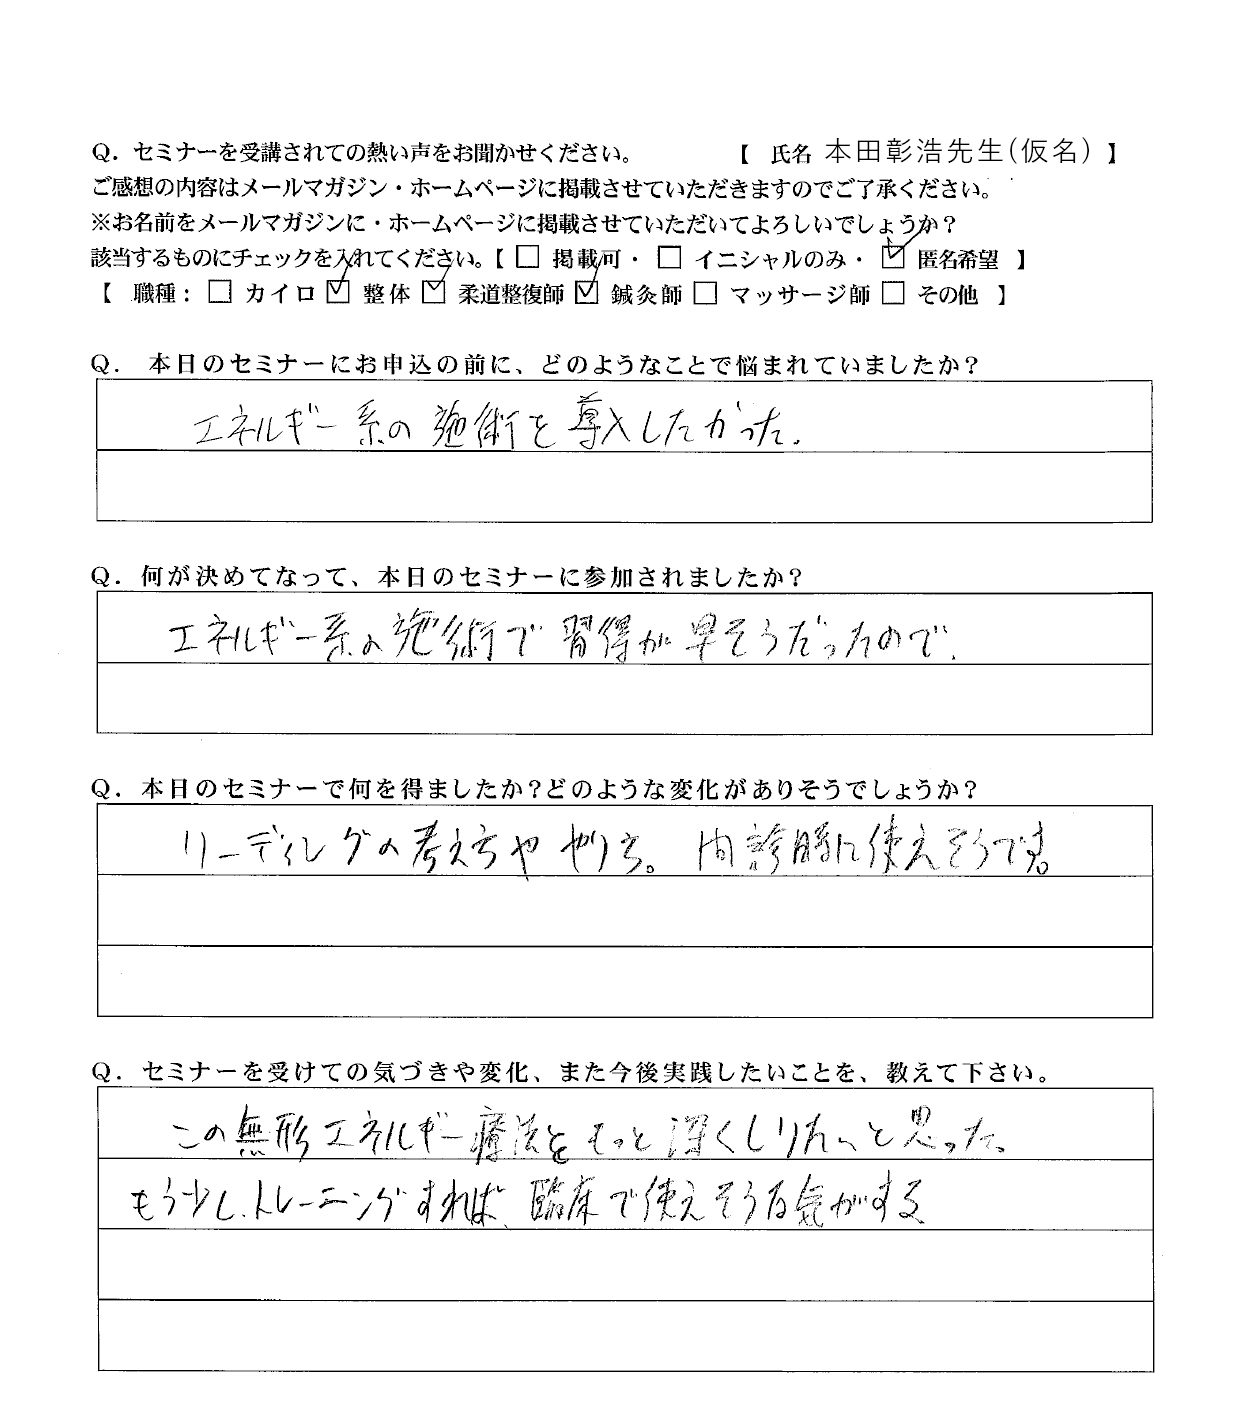 Q. セミナーを受講されての熱い声をお聞かせください。 【 氏名 本田彰浩先生(仮名) 】
ご感想の内容はメールマガジン・ホームページに掲載させていただきますのでご了承ください。
※お名前をメールマガジンに・ホームページに掲載させていただいてよろしいでしょうか？
該当するものにチェックを入れてください。【 □ 掲載可・ □ イニシャルのみ・ ☑ 匿名希望 】
【 職種： □ カイロ ☑ 整体 ☑ 柔道整復師 ☑ 鍼灸師 □ マッサージ師 □ その他 】
Q. 本日のセミナーにお申込の前に、どのようなことで悩まれていましたか？
エネルギー系の施術を導入したかった.
Q. 何が決めてなって、本日のセミナーに参加されましたか？
エネルギー系の施術で習得が早そうだったので.
Q. 本日のセミナーで何を得ましたか？どのような変化がありそうでしょうか？
リーディングの考え方ややり方。問診時に使えそうです。
Q. セミナーを受けての気づきや変化、また今後実践したいことを、教えて下さい。
この無形エネルギー療法をもっと深くしりたいと思った。
もう少し、トレーニングすれば、臨床で使えそうな気がする